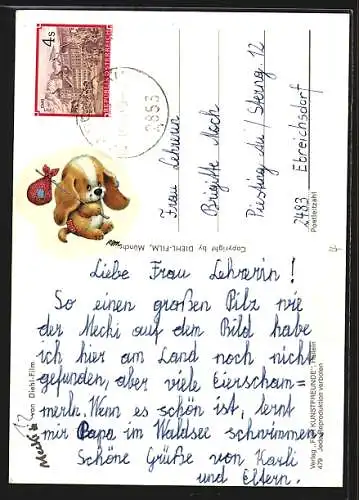 4 s
REPUBLIK ÖSTERREICH
2853
Frau Lehrerin
Brigitte Moch
Piesting Au / Sterng. 12
2483 Ebreichsdorf
Postleitzahl
Copyright by DIEHL-FILM, München
Liebe Frau Lehrerin!
So einen großen Pilz wie
der Mecki auf dem Bild habe
ich hier am Land noch nicht
gefunden, aber viele Eierscham=
merln. Wenn es schön ist, lernt
mir Papa im Waldsee schwimmen
Schöne Grüße von Karli
und Eltern.
Mecki
von Diehl-Film
Verlag „FÜR KUNSTFREUNDE“, Hallein
479 Jede Reproduktion verboten